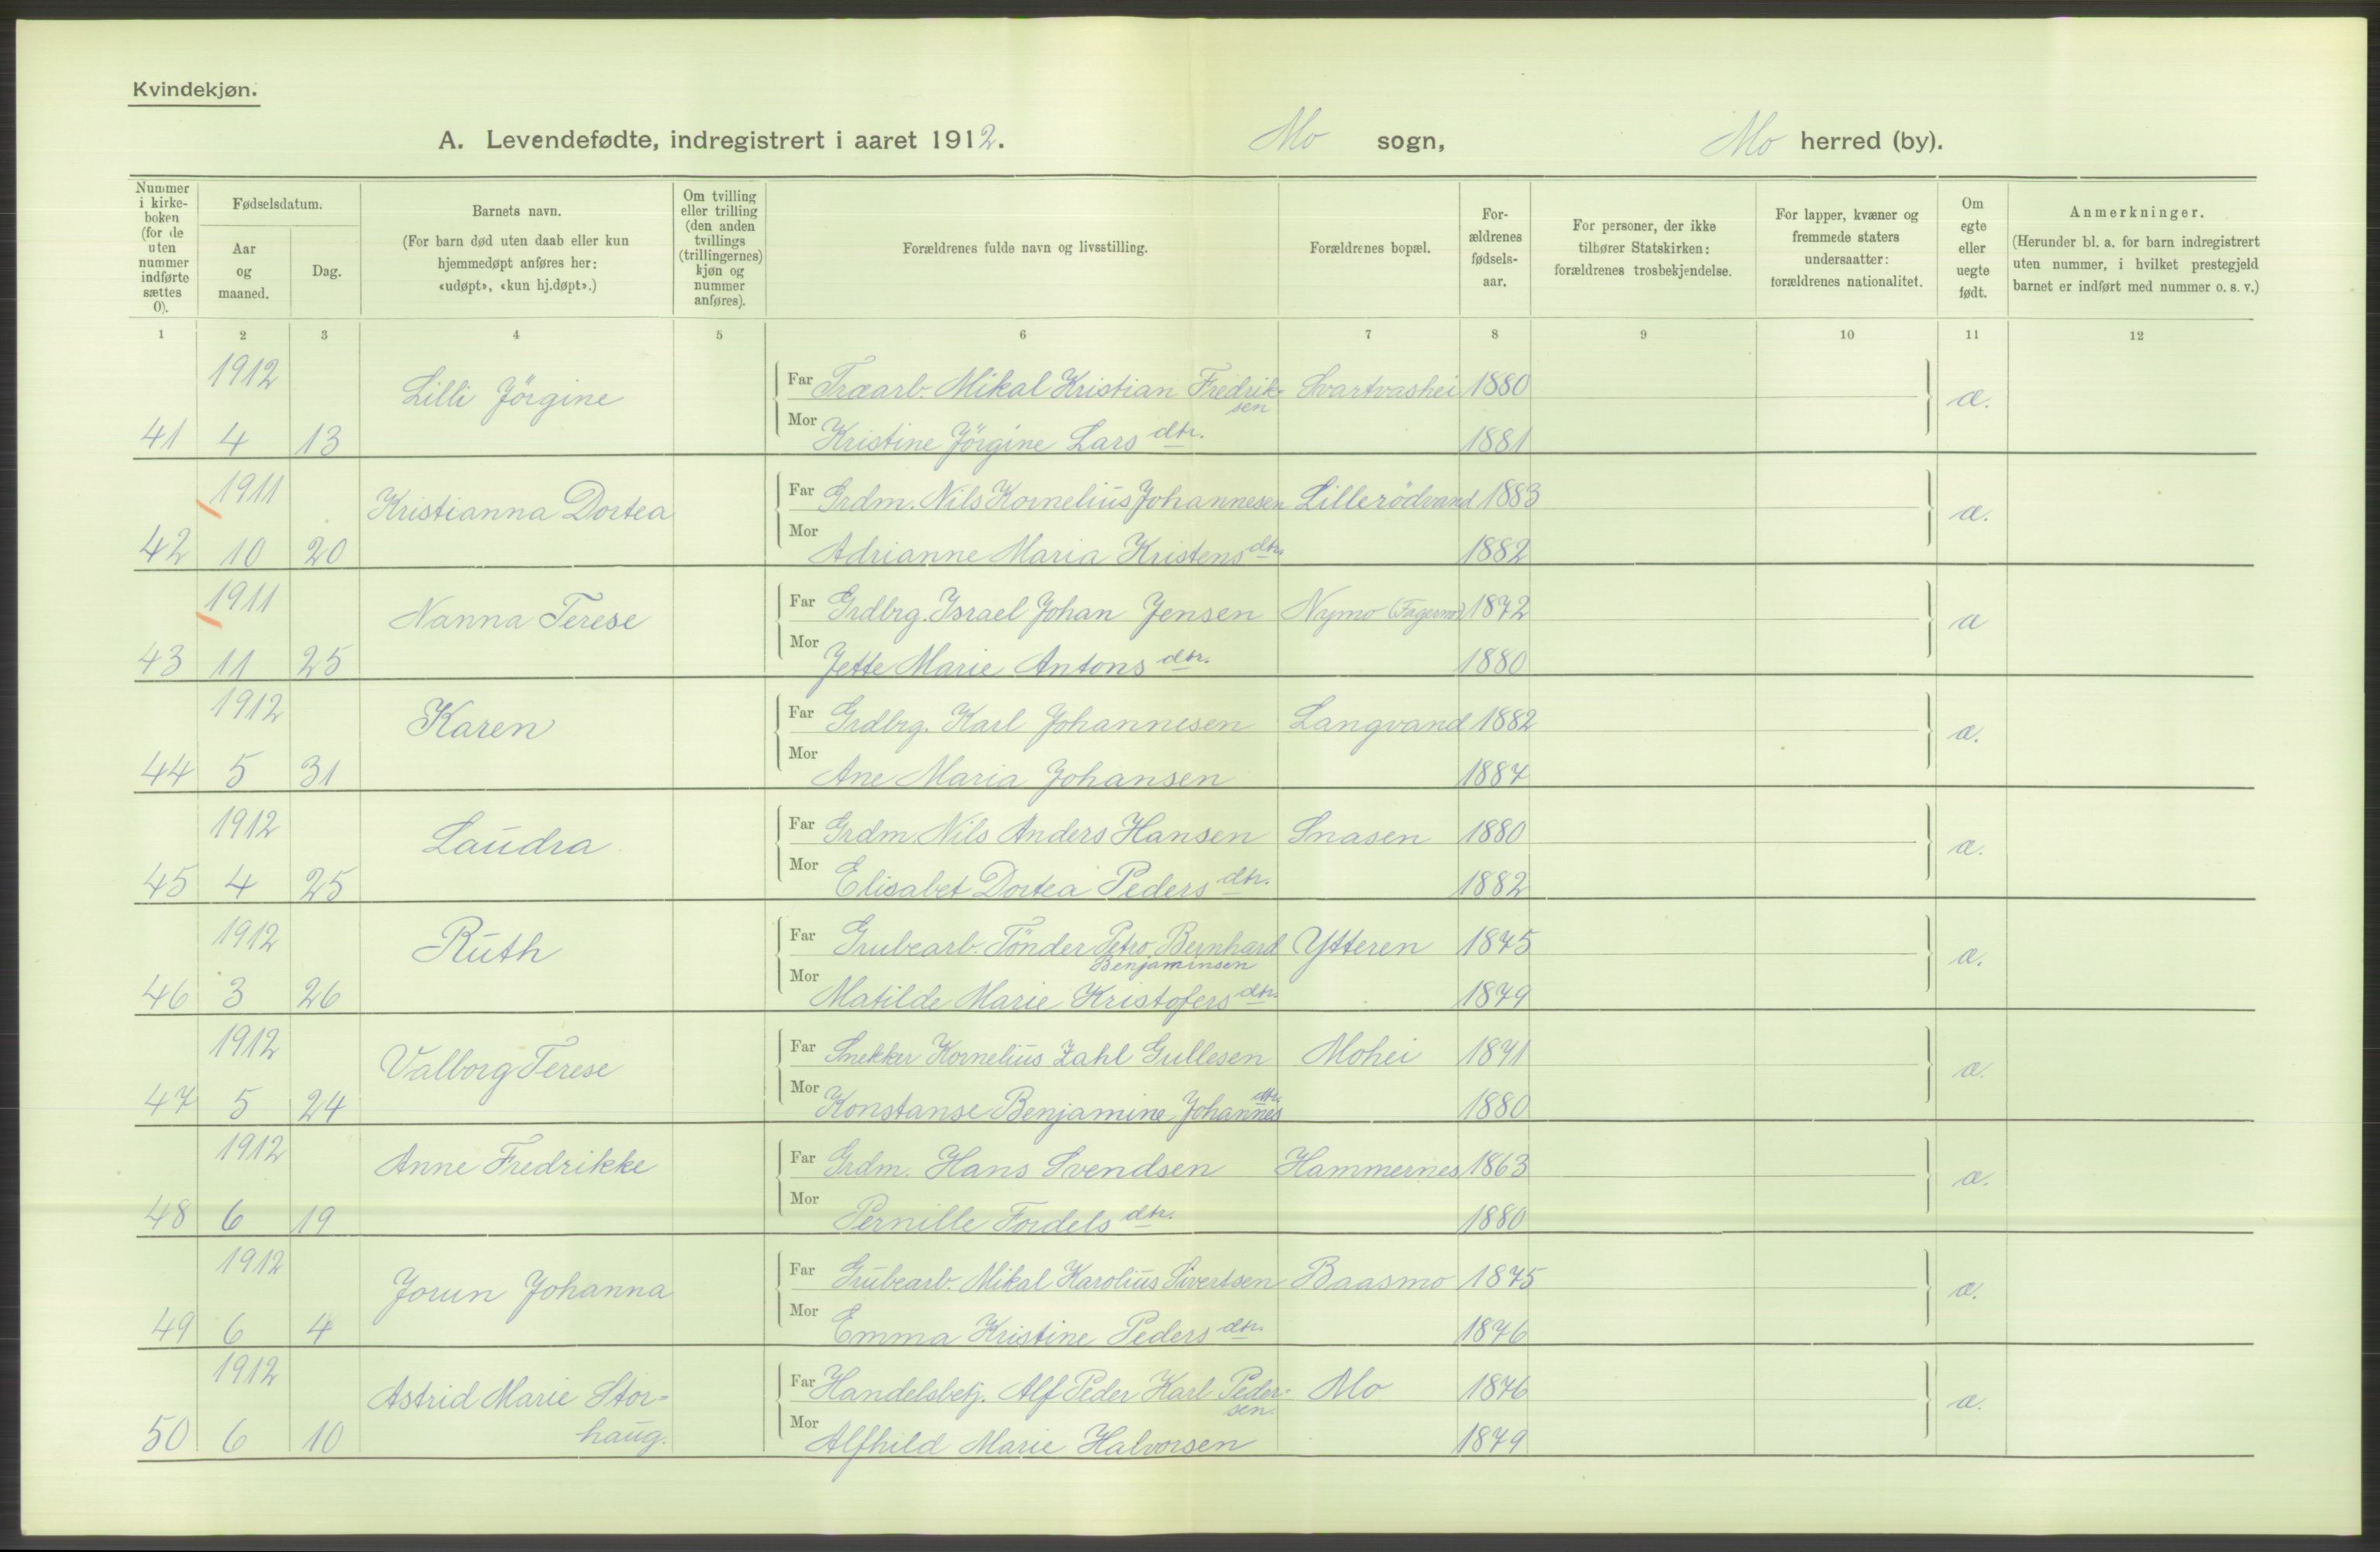 Kvindekjøn.
A. Levendefødte, indregistrert i aaret 1912. Mo sogn, Mo herred (by).
Nummer i kirke-boken (for de uten nummer indførte sættes 0).
Fødselsdatum.
Aar og maaned.
Dag.
Barnets navn.
(For barn død uten daab eller kun hjemmedøpt anføres her: «udøpt», «kun hj.døpt».)
Om tvilling eller trilling (den anden tvillings (trillingernes) kjøn og nummer anføres).
Forældrenes fulde navn og livsstilling.
Forældrenes bopæl.
For-ældrenes fødsels-aar.
For personer, der ikke tilhører Statskirken: forældrenes trosbekjendelse.
For lapper, kvæner og fremmede staters undersaatter: forældrenes nationalitet.
Om egte eller uegte født.
Anmerkninger.
(Herunder bl. a. for barn indregistrert uten nummer, i hvilket prestegjeld barnet er indført med nummer o. s. v.)
1 2 3 4 5 6 7 8 9 10 11 12
1912 Lilli Jörgine Far Træarb. Mikal Kristian Fredrik-sen Svartvashei 1880 æ.
41 4 13 Mor Kristine Jörgine Lars dtr. 1881
1911 Kristianna Dortea Far Grdm. Nils Kornelius Johannesen Lillerödvand 1883 æ.
42 10 20 Mor Adrianne Maria Kristens dtr. 1882
1911 Nanna Terese Far Grdbrg. Israel Johan Jensen Nymo (Fagermo) 1872 æ
43 11 25 Mor Jette Marie Antons dtr. 1880
1912 Karen Far Grdbrg. Karl Johannesen Langvand 1882 æ.
44 5 31 Mor Ane Maria Johansen 1887
1912 Laudra Far Grdm. Nils Anders Hansen Snasen 1880 æ.
45 4 25 Mor Elisabet Dortea Peders dtr. 1882
1912 Ruth Far Grubearb. Tönder Petro Bernhard Benjaminsen Ytteren 1875 æ.
46 3 26 Mor Matilde Marie Kristofers dtr. 1879
1912 Valborg Terese Far Snekker Kornelius Zahl Gullesen Mohei 1871 æ.
47 5 24 Mor Konstanse Benjamine Johannes dtr. 1880
1912 Anne Fredrikke Far Grdm. Hans Svendsen Hammernes 1863 æ.
48 6 19 Mor Pernille Fordels dtr. 1880
1912 Jorun Johanna Far Grubearb. Mikal Karolius Sivertsen Baasmo 1875 æ.
49 6 4 Mor Emma Kristine Peders dtr. 1876
1912 Astrid Marie Stor-haug. Far Handelsbetj. Alf Peder Karl Peder-sen. Mo 1876 æ.
50 6 10 Mor Alfhild Marie Halvorsen 1879